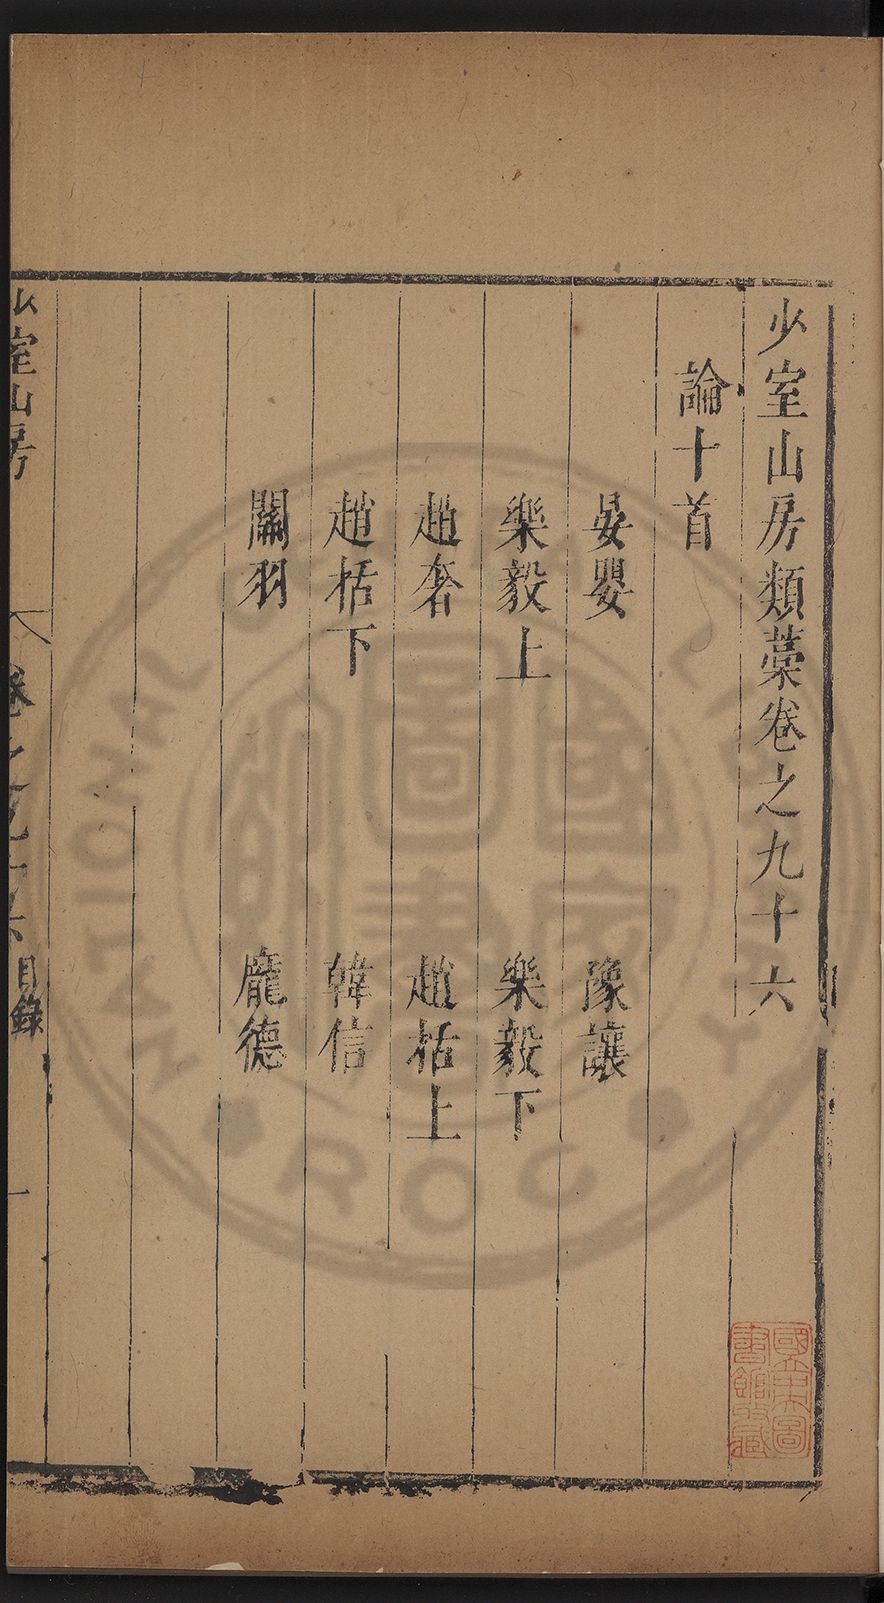 少室山房類藁卷之九十六
論十首
晏嬰 豫讓
樂毅上 樂毅下
趙奢 趙括上
趙括下 韓信
關羽 龐德
少室山房 卷之九十六目錄 一
國立中央圖書館收藏